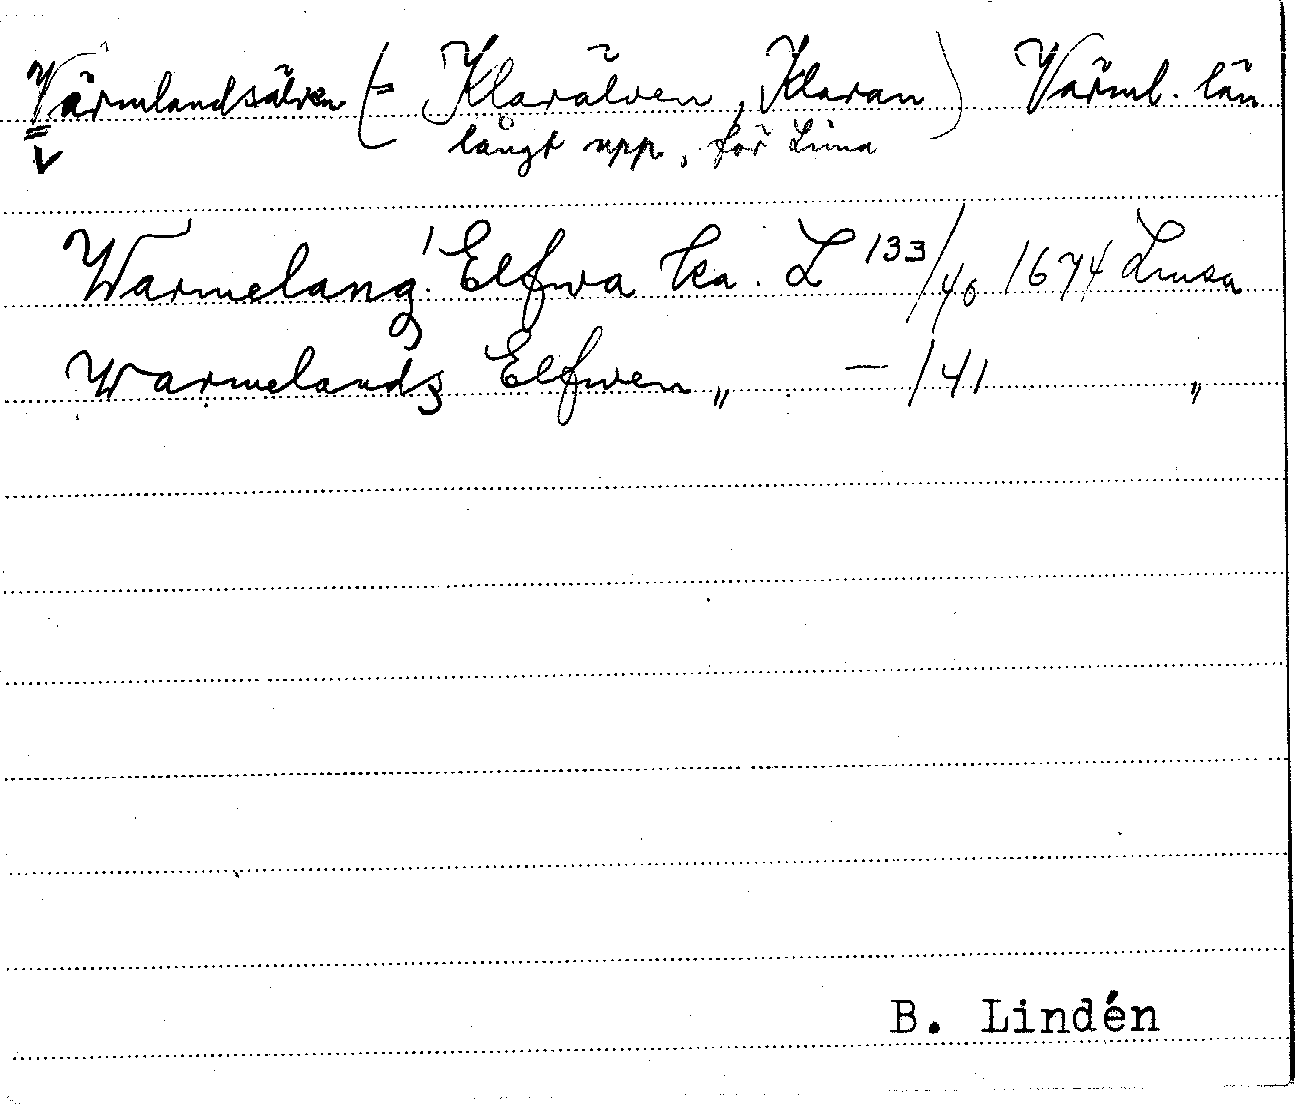 Värmlandsälven (= Klarälven, Klaran) Värml. län
långt upp, för Lima
V
Warmelang! Elfwa ka. L 133/40 1674 Limsa
Warmelands Elfwen „ — /41 „
B. Lindén